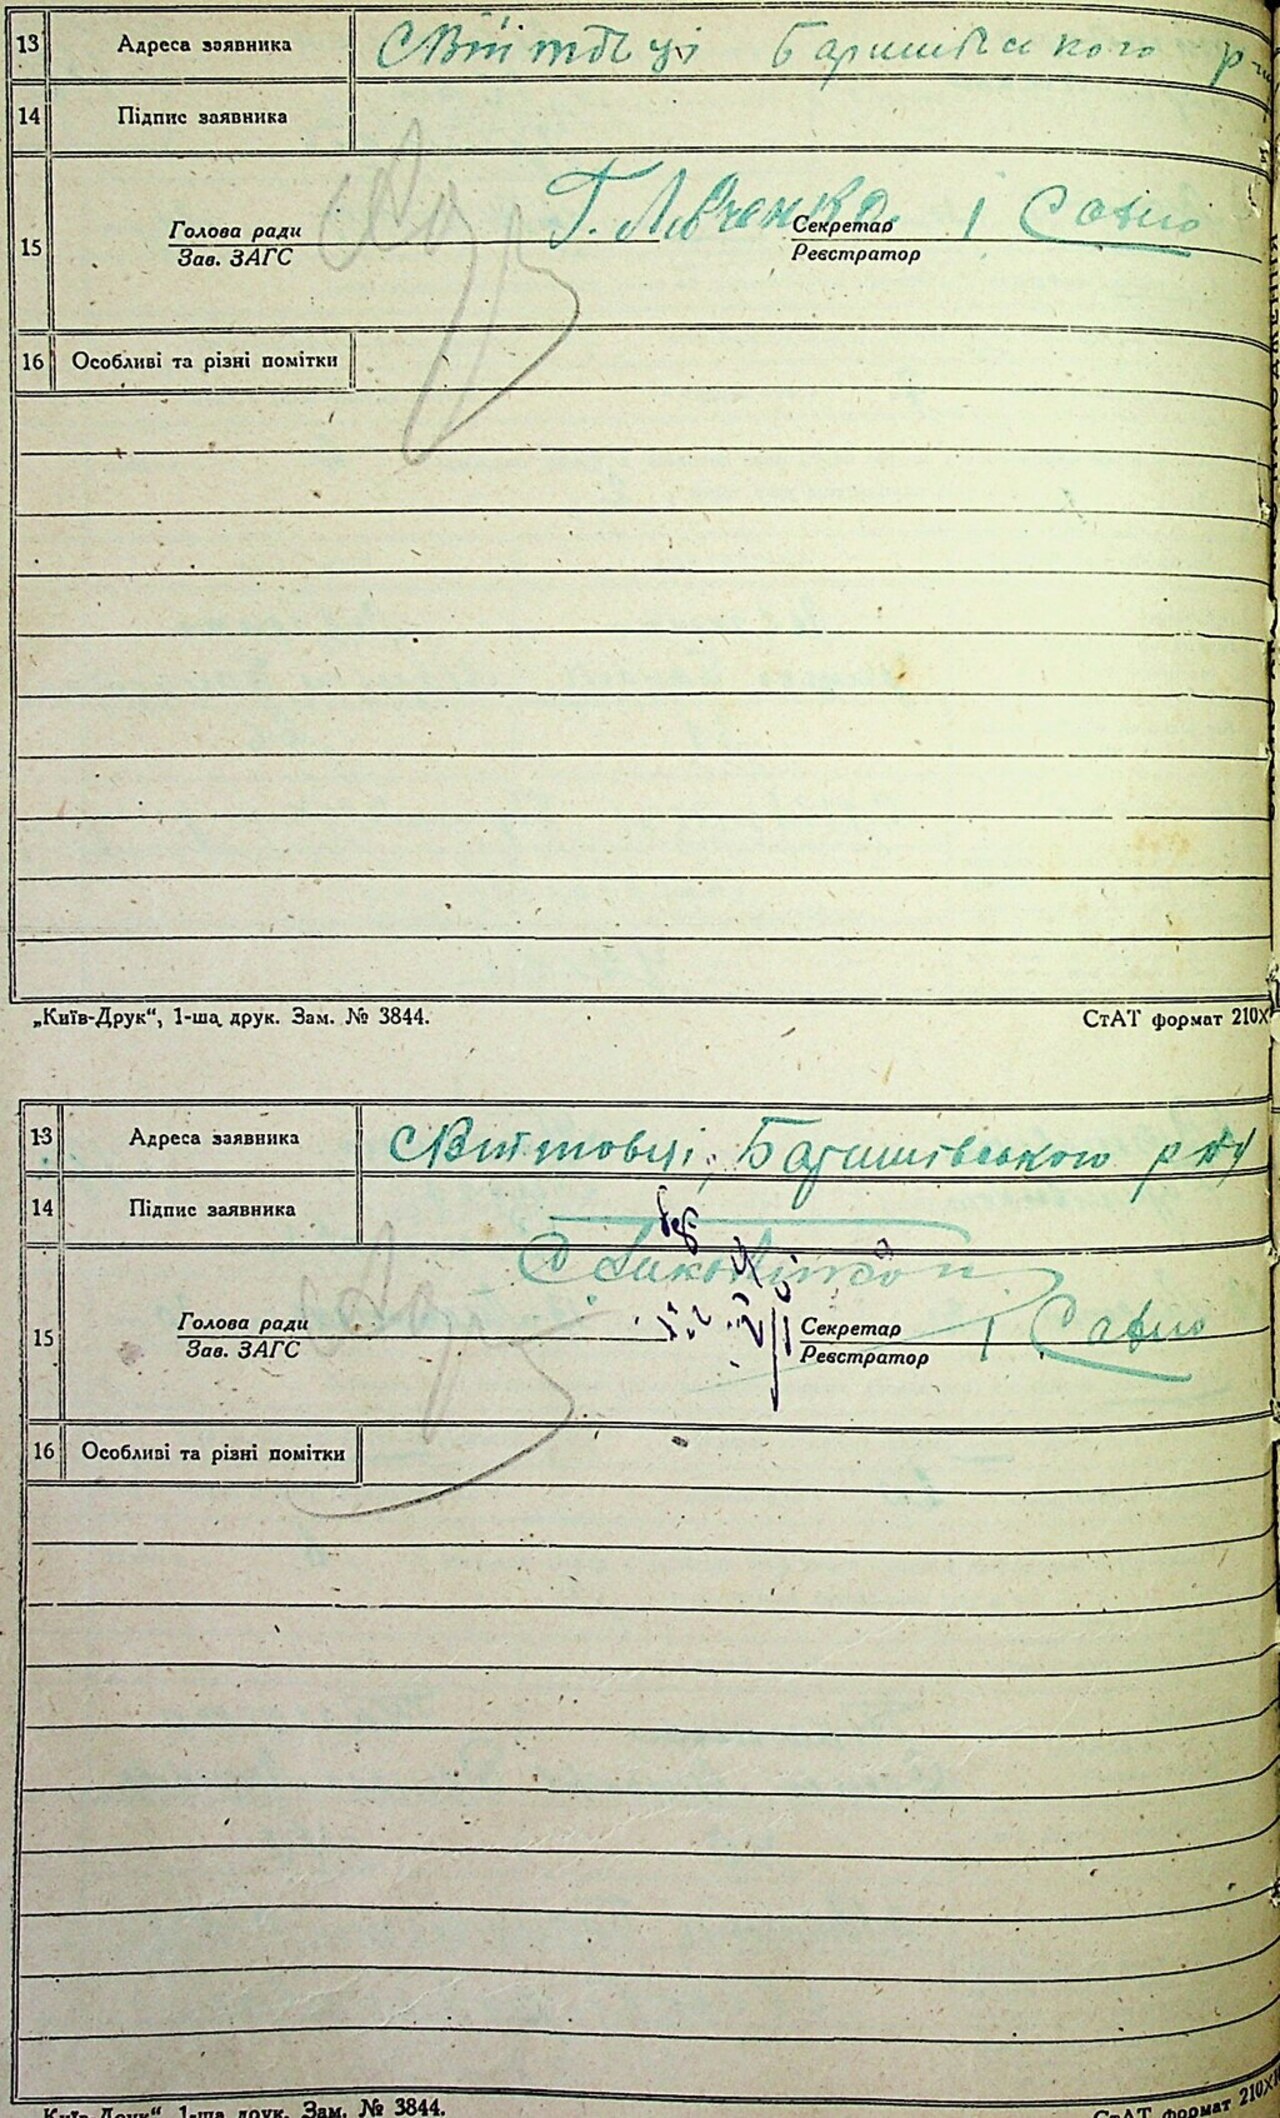 13 Адреса заявника Баришівського р-ну
14 Підпис заявника
Г. Лівченко
15 Голова ради Секретар
Зав. ЗАГС Реєстратор
16 Особливі та різні помітки
„Київ-Друк“, 1-ша друк. Зам. № 3844. СтАТ формат 210Х
13 Адреса заявника Війтовці, Баришівського р-ну
14 Підпис заявника
15 Голова ради Секретар
Зав. ЗАГС Реєстратор
16 Особливі та різні помітки
Київ-Друк“, 1-ша друк. Зам. № 3844. СтАТ формат 210Х